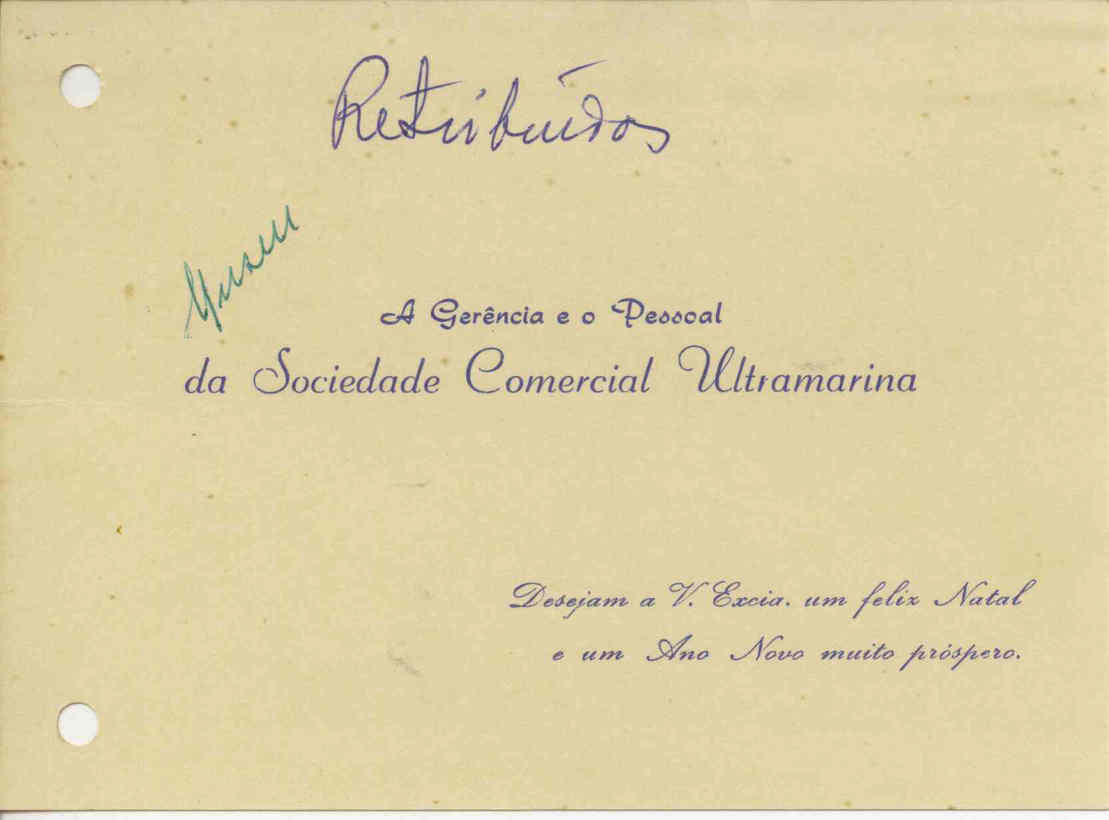 Retribuídos
A Gerência e o Pessoal
da Sociedade Comercial Ultramarina
Desejam a V. Excia. um feliz Natal
e um Ano Novo muito próspero.